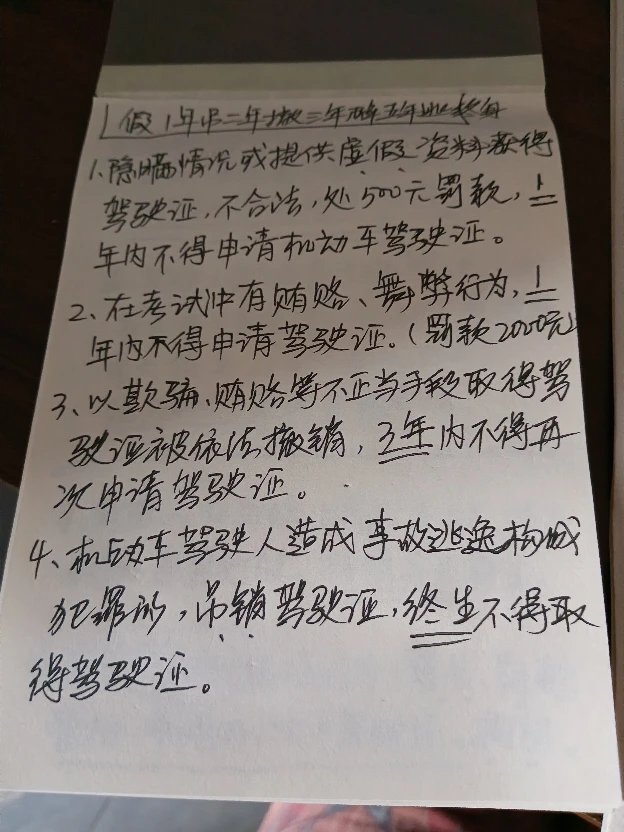 假1年吊二年撤三年醉五年逃终身
1、隐瞒情况或提供虚假资料获得
驾驶证,不合法,处500元罚款,1
年内不得申请机动车驾驶证。
2、在考试中有贿赂、舞弊行为,1
年内不得申请驾驶证。(罚款2000元)
3、以欺骗、贿赂等不正当手段取得驾
驶证被依法撤销,3年内不得再
次申请驾驶证。
4、机动车驾驶人造成事故逃逸构成
犯罪的,吊销驾驶证,终生不得取
得驾驶证。